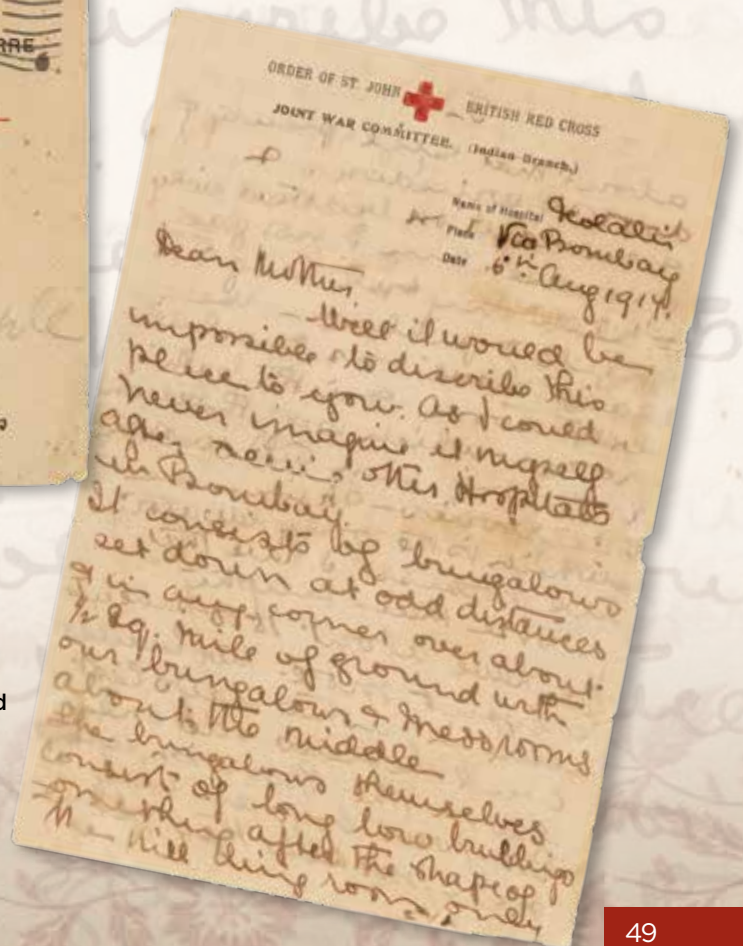 RRE
ORDER OF ST JOHN BRITISH RED CROSS
JOINT WAR COMMITTEE. (Indian Branch.)
Name of Hospital
Place Via Bombay
Date 6th Aug 1917.
Dear Mother,
Well it would be
impossible to describe this
place to you. As I could
never imagine it myself
after seeing other Hospitals
in Bombay.
It consists of bungalows
set down at odd distances
& in any corner over about
½ Sq. mile of ground with
our bungalows & Messrooms
about the middle
The bungalows themselves
consist of long low buildings
something after the shape of
the only
d
49